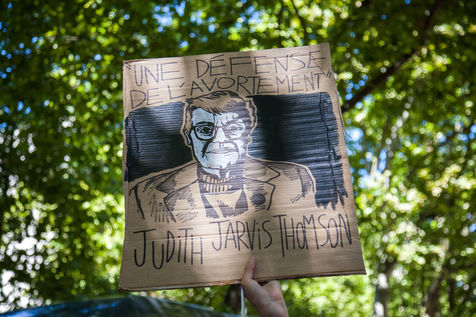 UNE DÉFENSE
DE L'AVORTEMENT
JUDITH JARVIS THOMSON